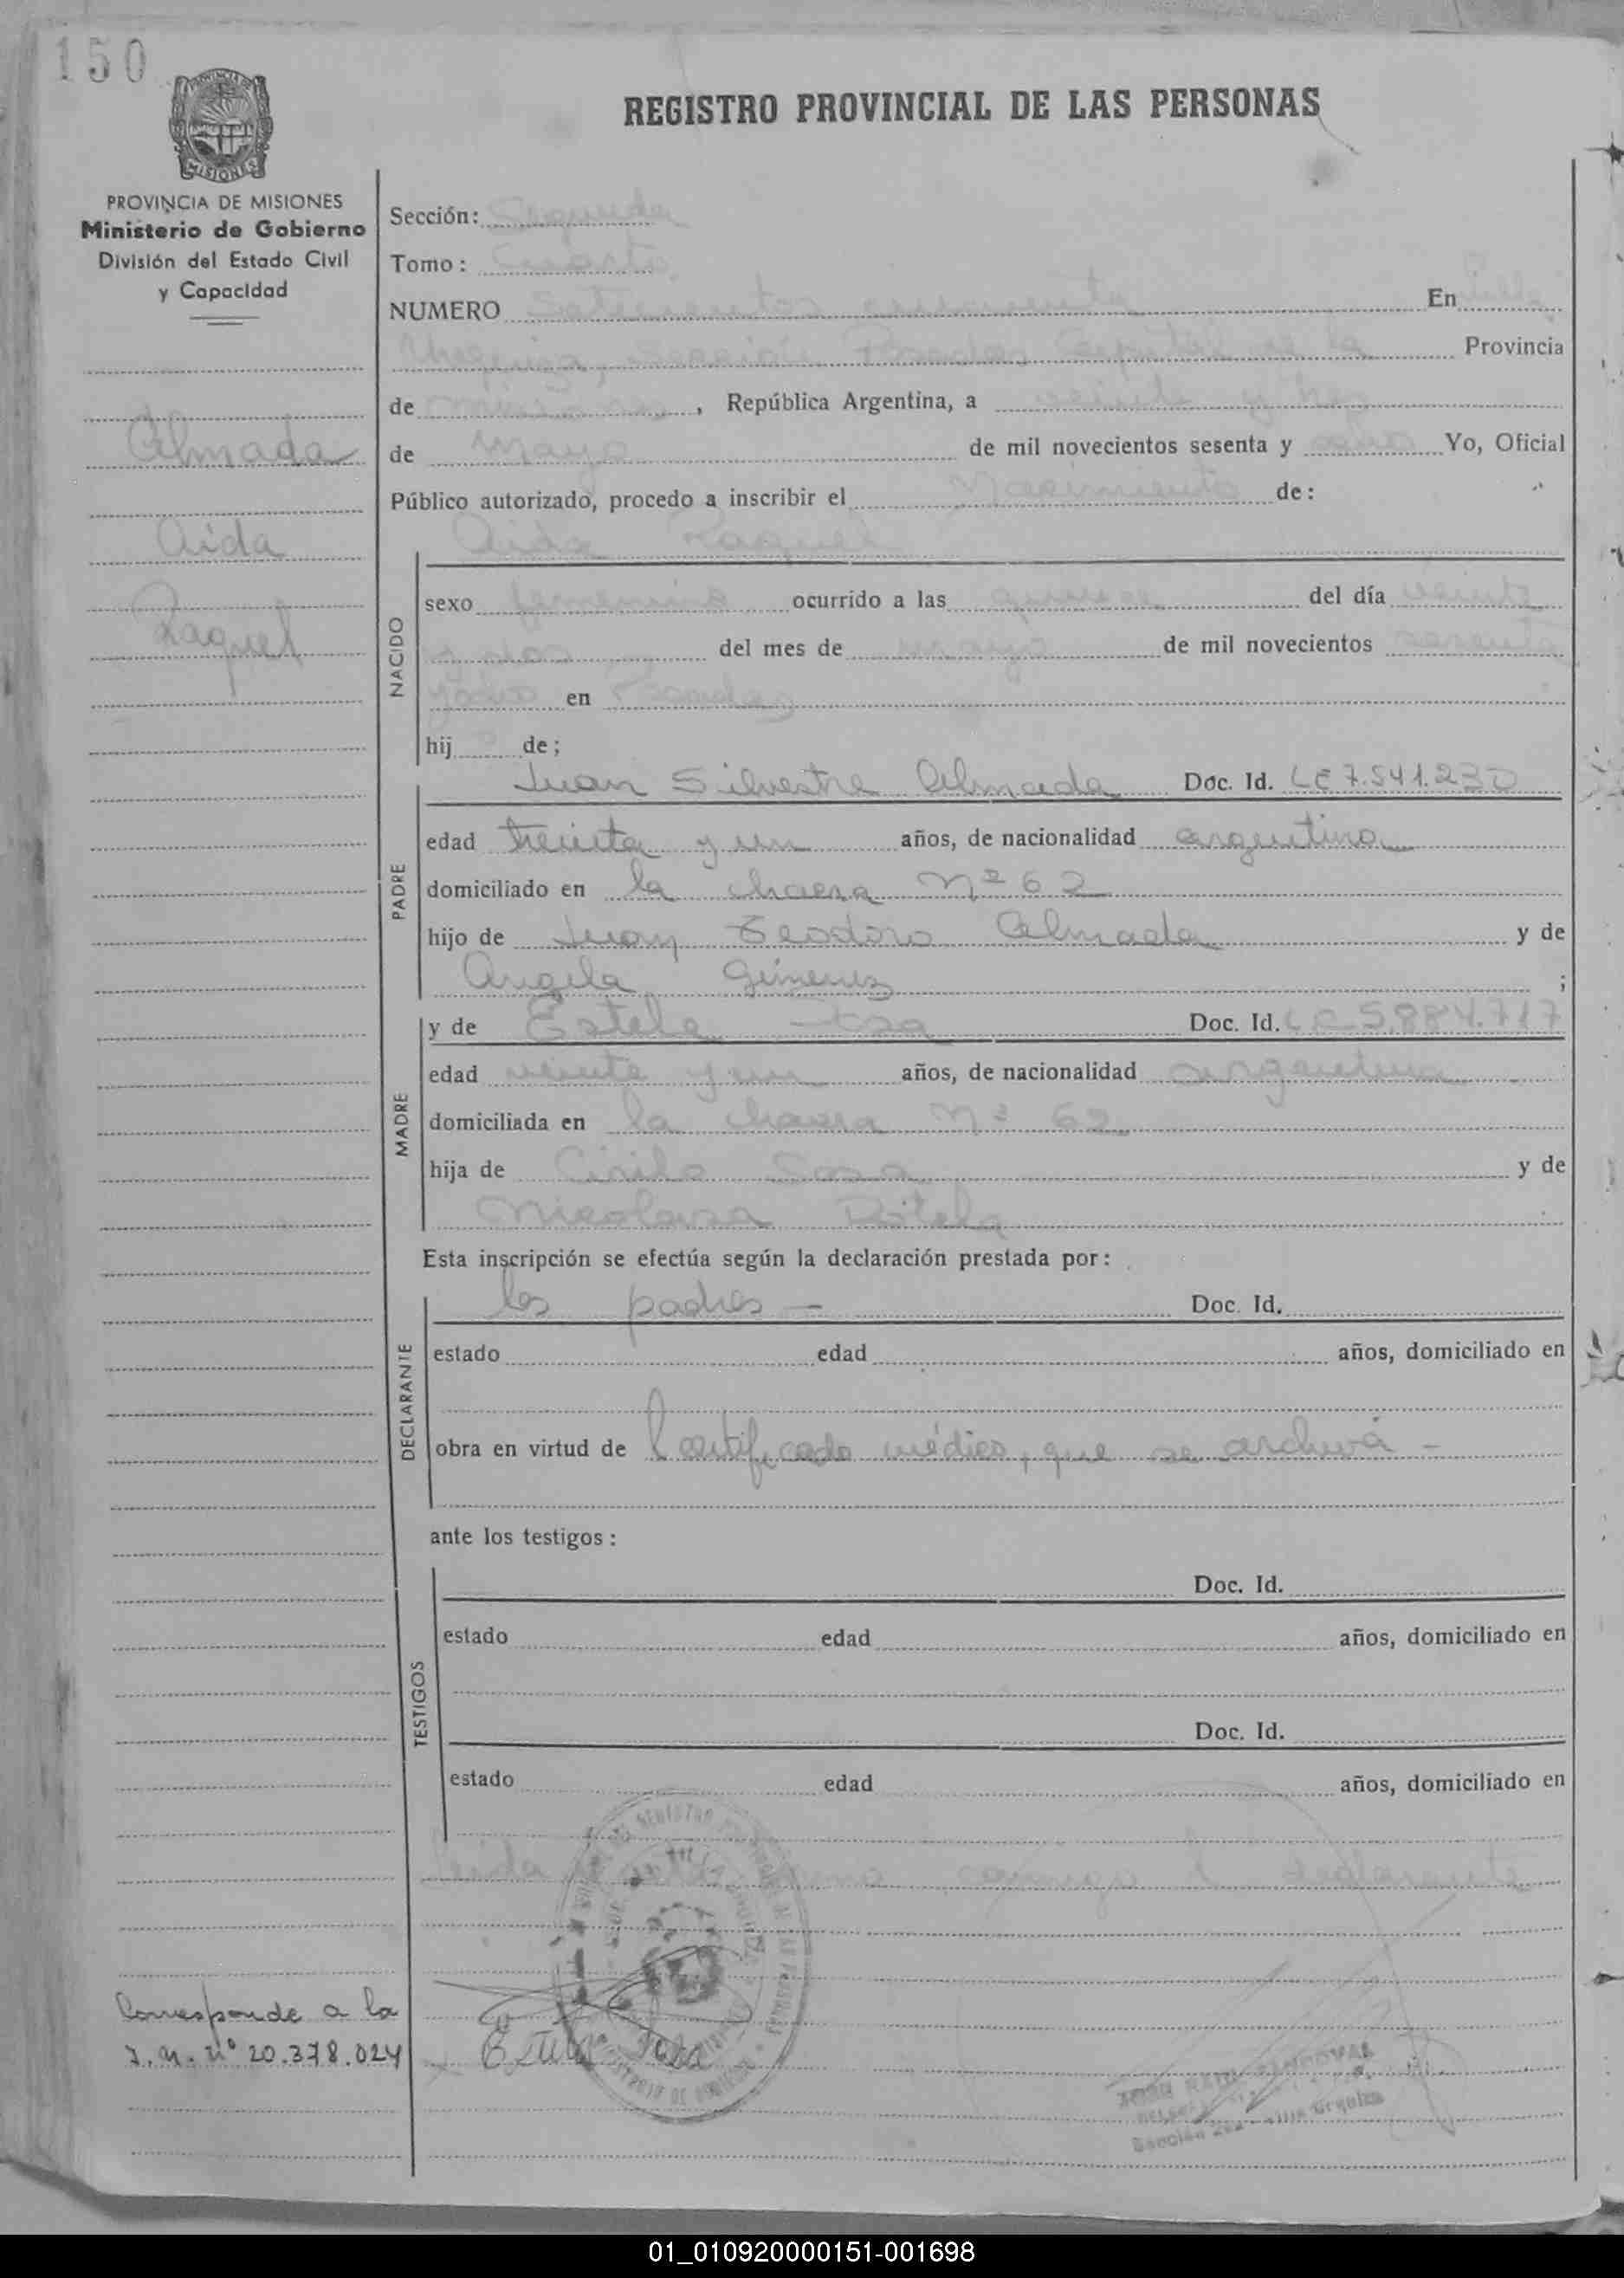 150
PROVINCIA DE
MISIONES
REGISTRO PROVINCIAL DE LAS PERSONAS
PROVINCIA DE MISIONES
Ministerio de Gobierno
División del Estado Civil
y Capacidad
Almada
Aida
Raquel
Sección: Segunda
Tomo: Cuarto
NUMERO Setecientos cincuenta En Villa
Urquiza, sección Posadas Capital de la Provincia
de Misiones, República Argentina, a veinte y tres
de Mayo de mil novecientos sesenta y ocho Yo, Oficial
Público autorizado, procedo a inscribir el Nacimiento de:
Aida Raquel
NACIDO
sexo femenino ocurrido a las quince del día veinte
y dos del mes de mayo de mil novecientos sesenta
y ocho en Posadas
hij de;
PADRE
Juan Silvestre Almada Doc. Id. LE 7.541.230
edad treinta y un años, de nacionalidad argentina
domiciliado en la chacra Nº 62
hijo de Juan Teodoro Almada y de
Angela Gimenez ;
MADRE
y de Estela Sosa Doc. Id. LC 5.884.717
edad veinte y un años, de nacionalidad argentina
domiciliada en la chacra Nº 62
hija de Cirilo Sosa y de
Nicolasa Rotela
Esta inscripción se efectúa según la declaración prestada por:
DECLARANTE
los padres – Doc. Id.
estado edad años, domiciliado en
obra en virtud de Certificado médico, que se archiva –
ante los testigos:
TESTIGOS
Doc. Id.
estado edad años, domiciliado en
Doc. Id.
estado edad años, domiciliado en
Leida conmigo el declarante
Corresponde a la
I.M. nº 20.378.024
Estela Sosa
SANDOVAL
Sección Villa Urquiza
01_010920000151-001698